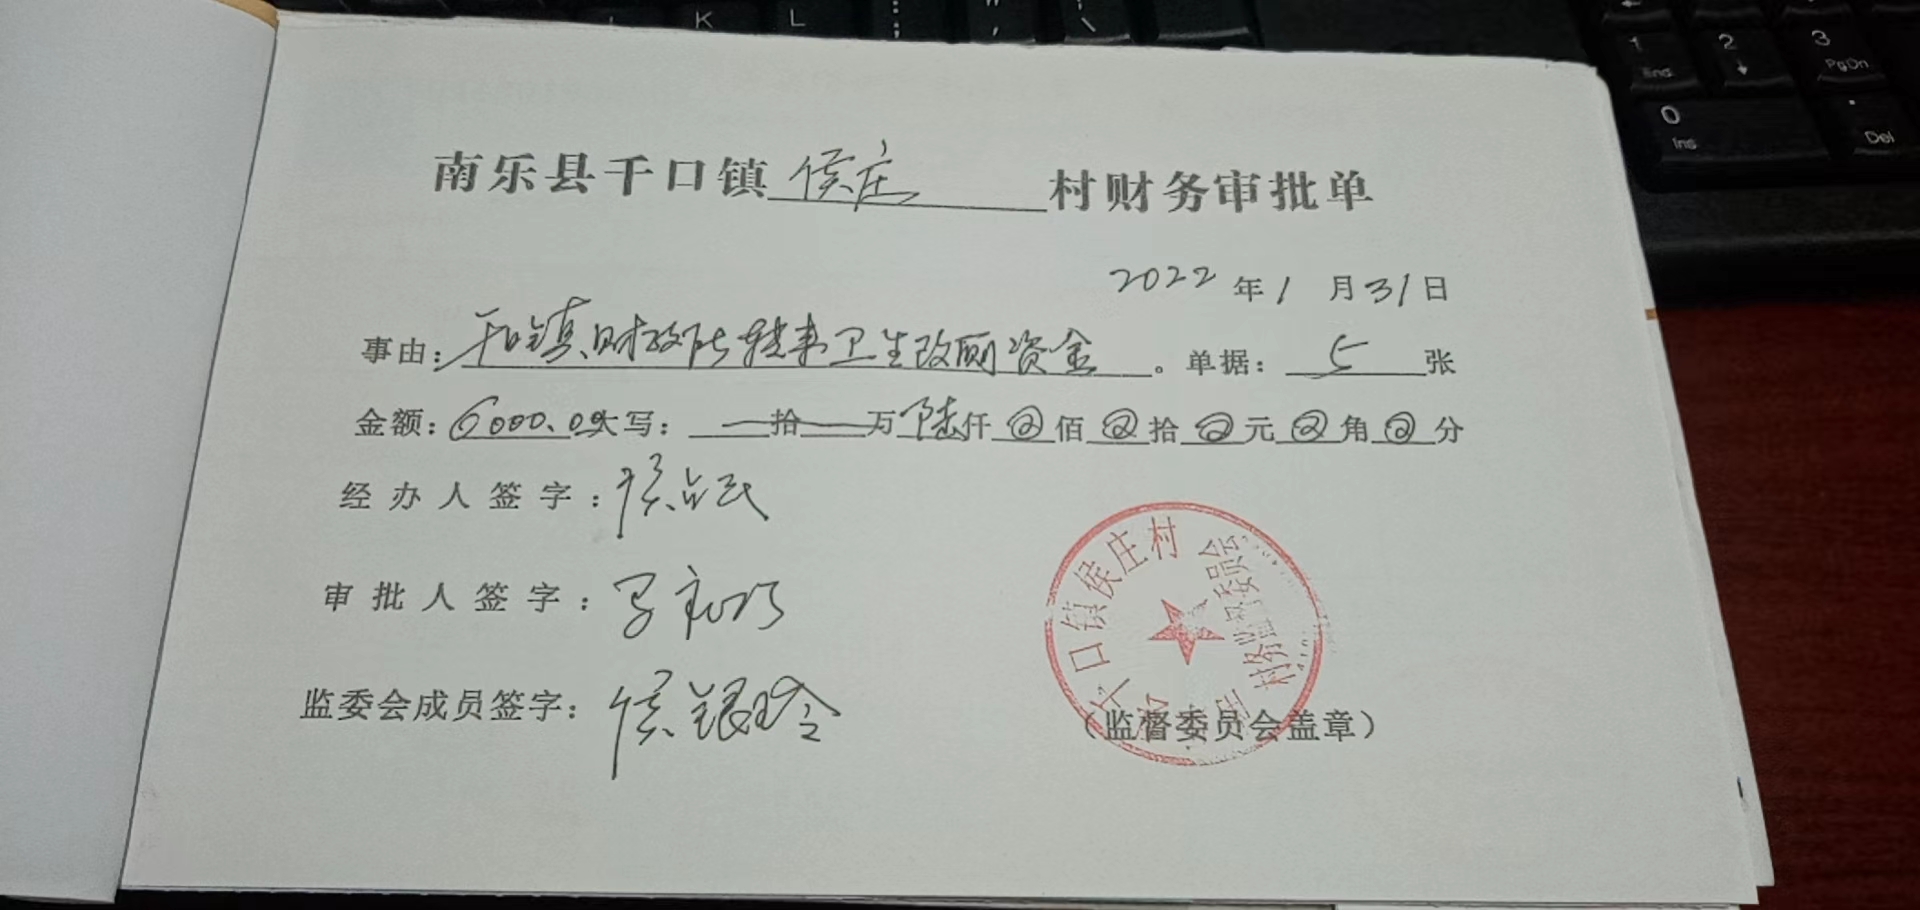 K L
1 End 2 3 PgDn
0 Ins . Del
南乐县千口镇 侯庄 村财务审批单
2022 年 1 月 31 日
事由: 千口镇财政所转来卫生改厕资金 。单据: 5 张
金额: 6000.00 大写: 拾 万 陆 仟 0 佰 0 拾 0 元 0 角 0 分
经办人签字: 侯占民
审批人签字:
监委会成员签字: 侯银玲
千口镇侯庄村 村务监督委员会
(监督委员会盖章)